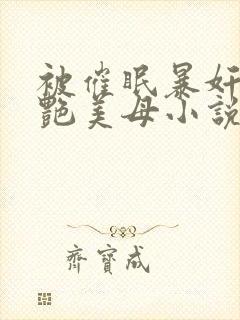 被催眠暴奸
艷美母小說
齊寶成